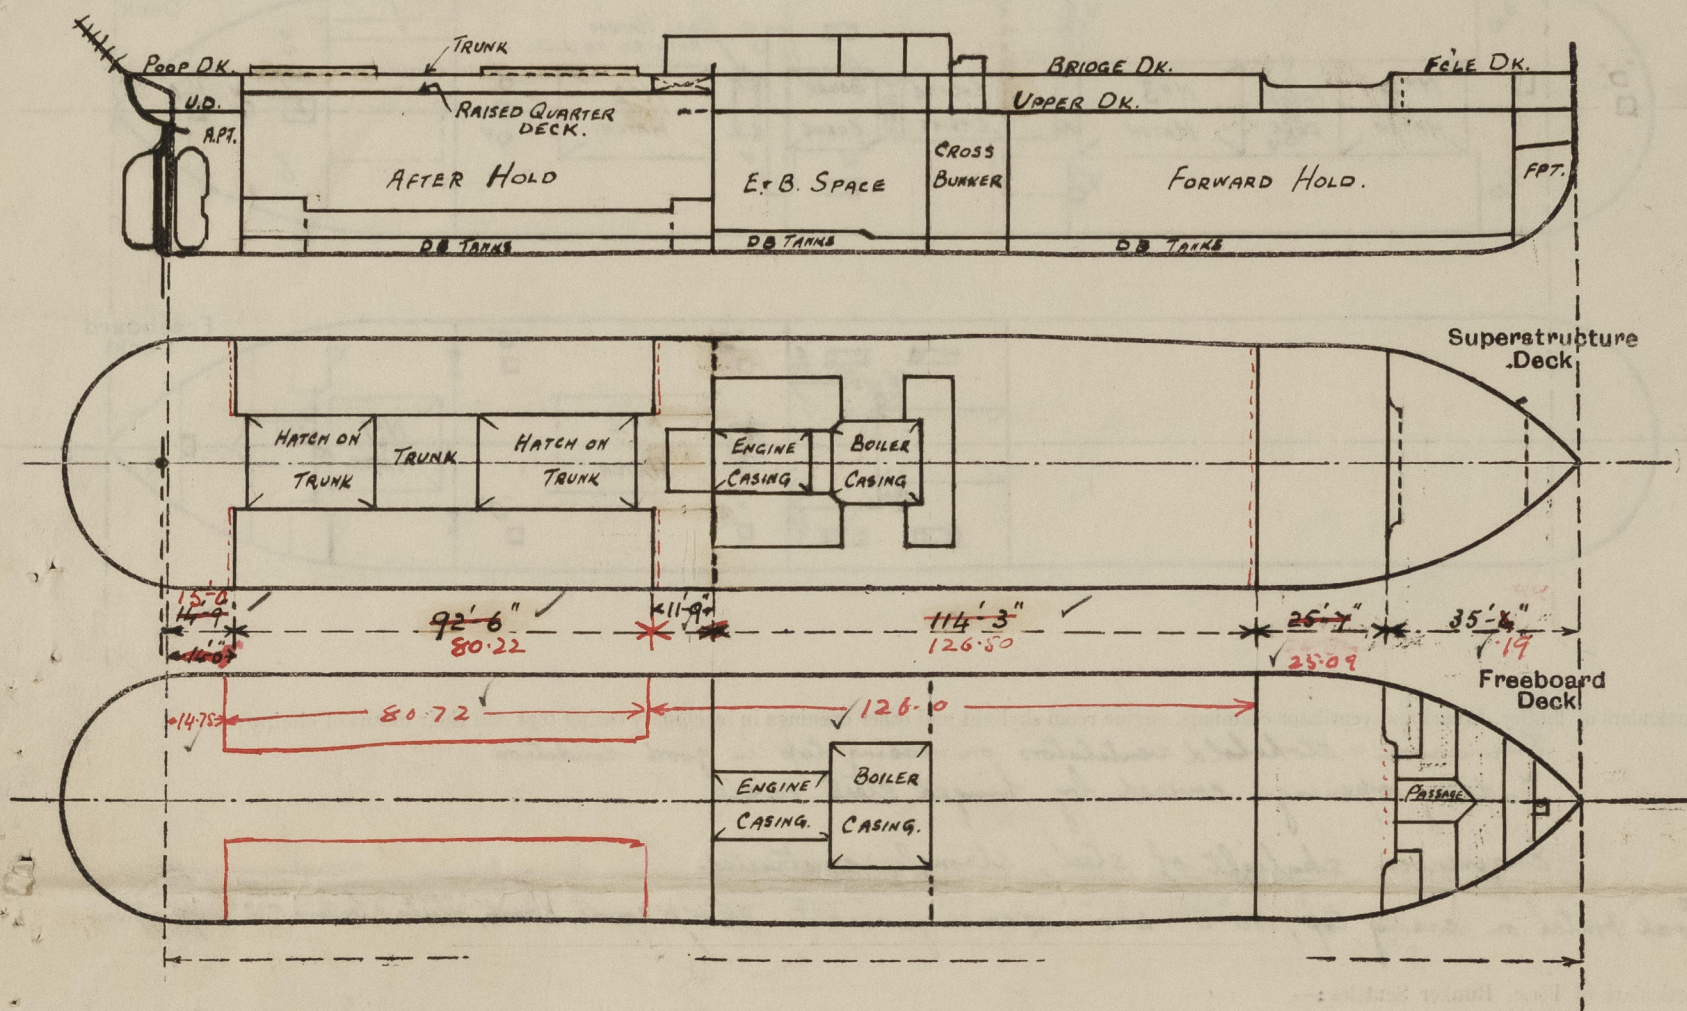 TRUNK
POOP DK.
BRIDGE DK.
FCLE DK.
U.D.
RAISED QUARTER
DECK.
UPPER DK.
A.P.T.
AFTER HOLD
E & B. SPACE
CROSS
BUNKER
FORWARD HOLD.
FPT.
DB TANKS
DB TANKS
DB TANKS
Superstructure
Deck
HATCH ON
TRUNK
TRUNK
HATCH ON
TRUNK
ENGINE
CASING
BOILER
CASING
15-0
14-9
92'-6"
11'-9"
114'-3"
25'-7"
35'-
80.22
126.50
25.09
.19
14-0
Freeboard
Deck
14.75
80.72
126.0
ENGINE
CASING.
BOILER
CASING.
PASSAGE